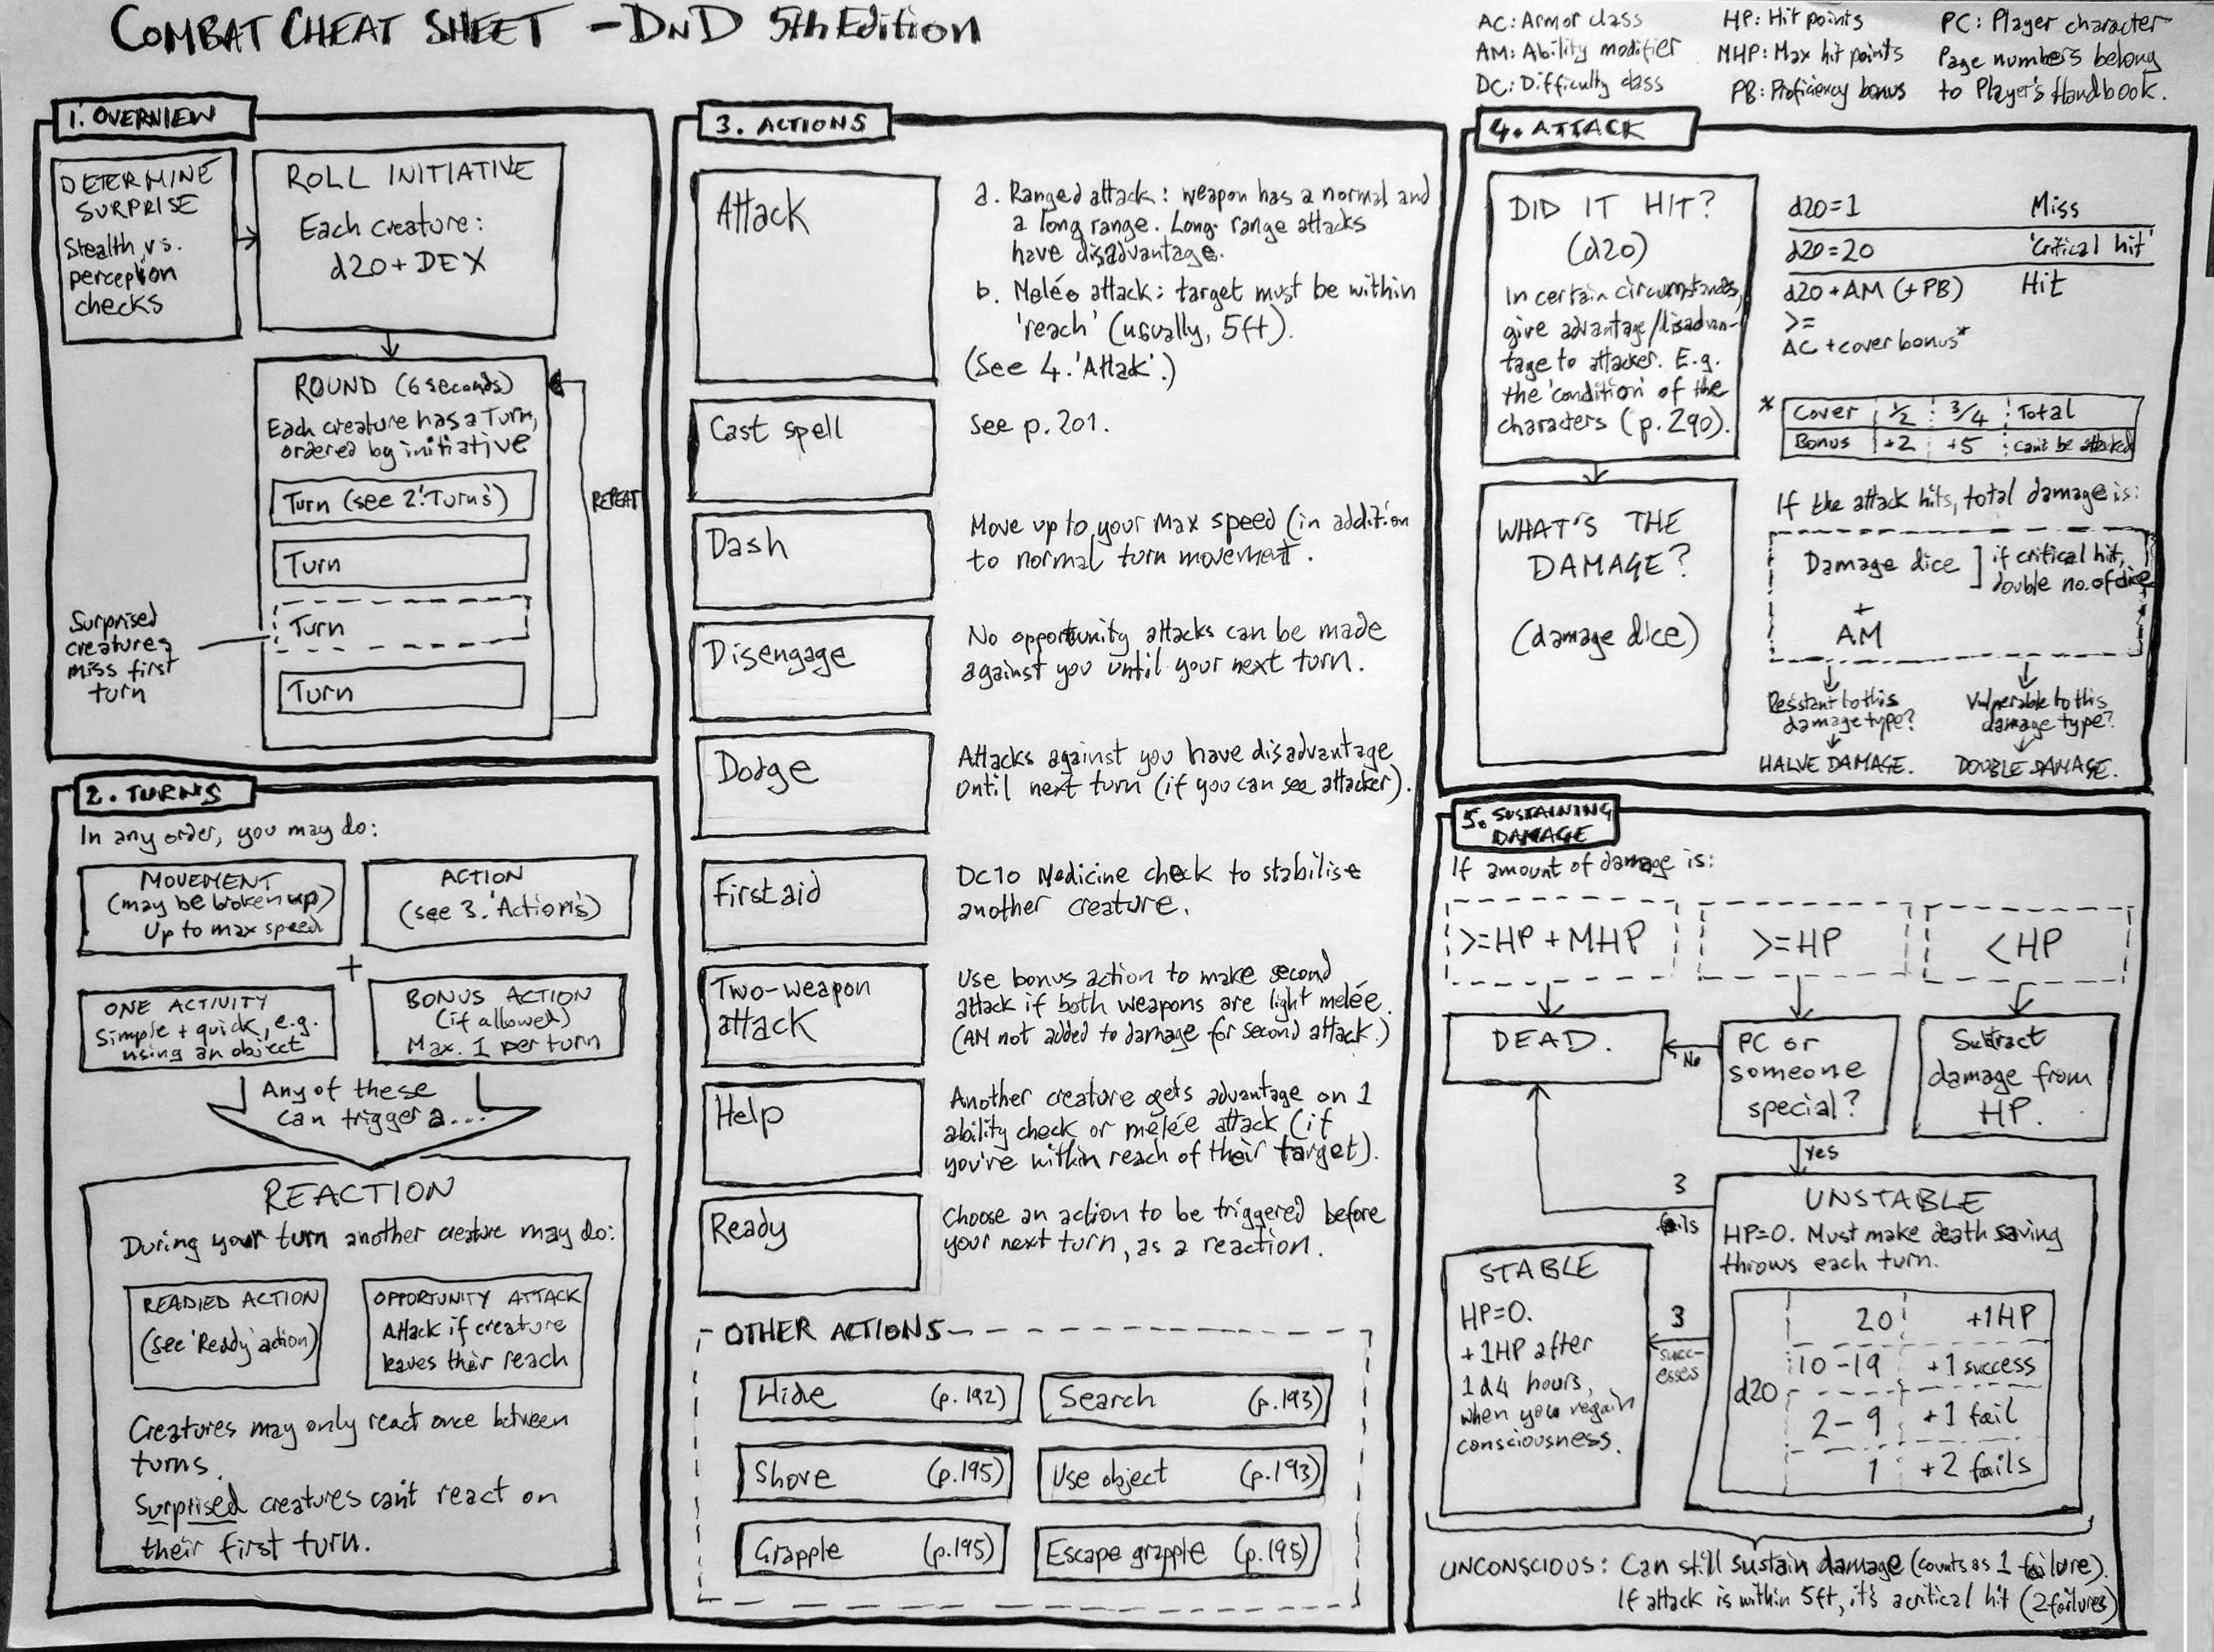 COMBAT CHEAT SHEET - DnD 5th Edition
AC: Armor class
AM: Ability modifier
DC: Difficulty class
HP: Hit points
MHP: Max hit points
PB: Proficiency bonus
PC: Player character
Page numbers belong
to Player's Handbook.
1. OVERVIEW
DETERMINE
SURPRISE
Stealth vs.
perception
checks
ROLL INITIATIVE
Each creature:
d20 + DEX
ROUND (6 seconds)
Each creature has a Turn,
ordered by initiative
Turn (see 2.'Turns')
Turn
Turn
Turn
REPEAT
Surprised
creatures
miss first
turn
2. TURNS
In any order, you may do:
MOVEMENT
(may be broken up)
Up to max speed
ACTION
(see 3. 'Actions')
+
ONE ACTIVITY
Simple + quick, e.g.
using an object
BONUS ACTION
(if allowed)
Max. 1 per turn
Any of these
can trigger a...
REACTION
During your turn another creature may do:
READIED ACTION
(see 'Ready' action)
OPPORTUNITY ATTACK
Attack if creature
leaves their reach
Creatures may only react once between
turns.
Surprised creatures can't react on
their first turn.
3. ACTIONS
Attack
a. Ranged attack: weapon has a normal and
a long range. Long-range attacks
have disadvantage.
b. Melée attack: target must be within
'reach' (usually, 5ft).
(See 4.'Attak'.)
Cast spell
See p. 201.
Dash
Move up to your max speed (in addition
to normal turn movement.
Disengage
No opportunity attacks can be made
against you until your next turn.
Dodge
Attacks against you have disadvantage
until next turn (if you can see attacker).
First aid
DC10 Medicine check to stabilise
another creature.
Two-weapon
attack
Use bonus action to make second
attack if both weapons are light melée.
(AM not added to damage for second attack.)
Help
Another creature gets advantage on 1
ability check or melée attack (if
you're within reach of their target).
Ready
Choose an action to be triggered before
your next turn, as a reaction.
OTHER ACTIONS
Hide (p.192)
Search (p.193)
Shove (p.195)
Use object (p.193)
Grapple (p.195)
Escape grapple (p.195)
4. ATTACK
DID IT HIT?
(d20)
In certain circumstances,
give advantage/disadvan-
tage to attacker. E.g.
the 'condition' of the
characters (p.290).
d20=1 Miss
d20=20 'Critical hit'
d20+AM (+PB) Hit
>=
AC + cover bonus*
* Cover 1/2 3/4 Total
Bonus +2 +5 can't be attacked
WHAT'S THE
DAMAGE?
(damage dice)
If the attack hits, total damage is:
Damage dice ] if critical hit,
double no. of dice
+
AM
Resistant to this
damage type?
HALVE DAMAGE.
Vulnerable to this
damage type?
DOUBLE DAMAGE.
5. SUSTAINING
DAMAGE
If amount of damage is:
>=HP + MHP
>=HP
<HP
DEAD.
No
PC or
someone
special?
Subtract
damage from
HP.
Yes
3
fails
UNSTABLE
HP=0. Must make death saving
throws each turn.
d20
20 +1HP
10-19 +1 success
2-9 +1 fail
1 +2 fails
3
succ-
esses
STABLE
HP=0.
+1HP after
1d4 hours,
when you regain
consciousness.
UNCONSCIOUS: Can still sustain damage (counts as 1 failure).
If attack is within 5ft, it's a critical hit (2 failures)